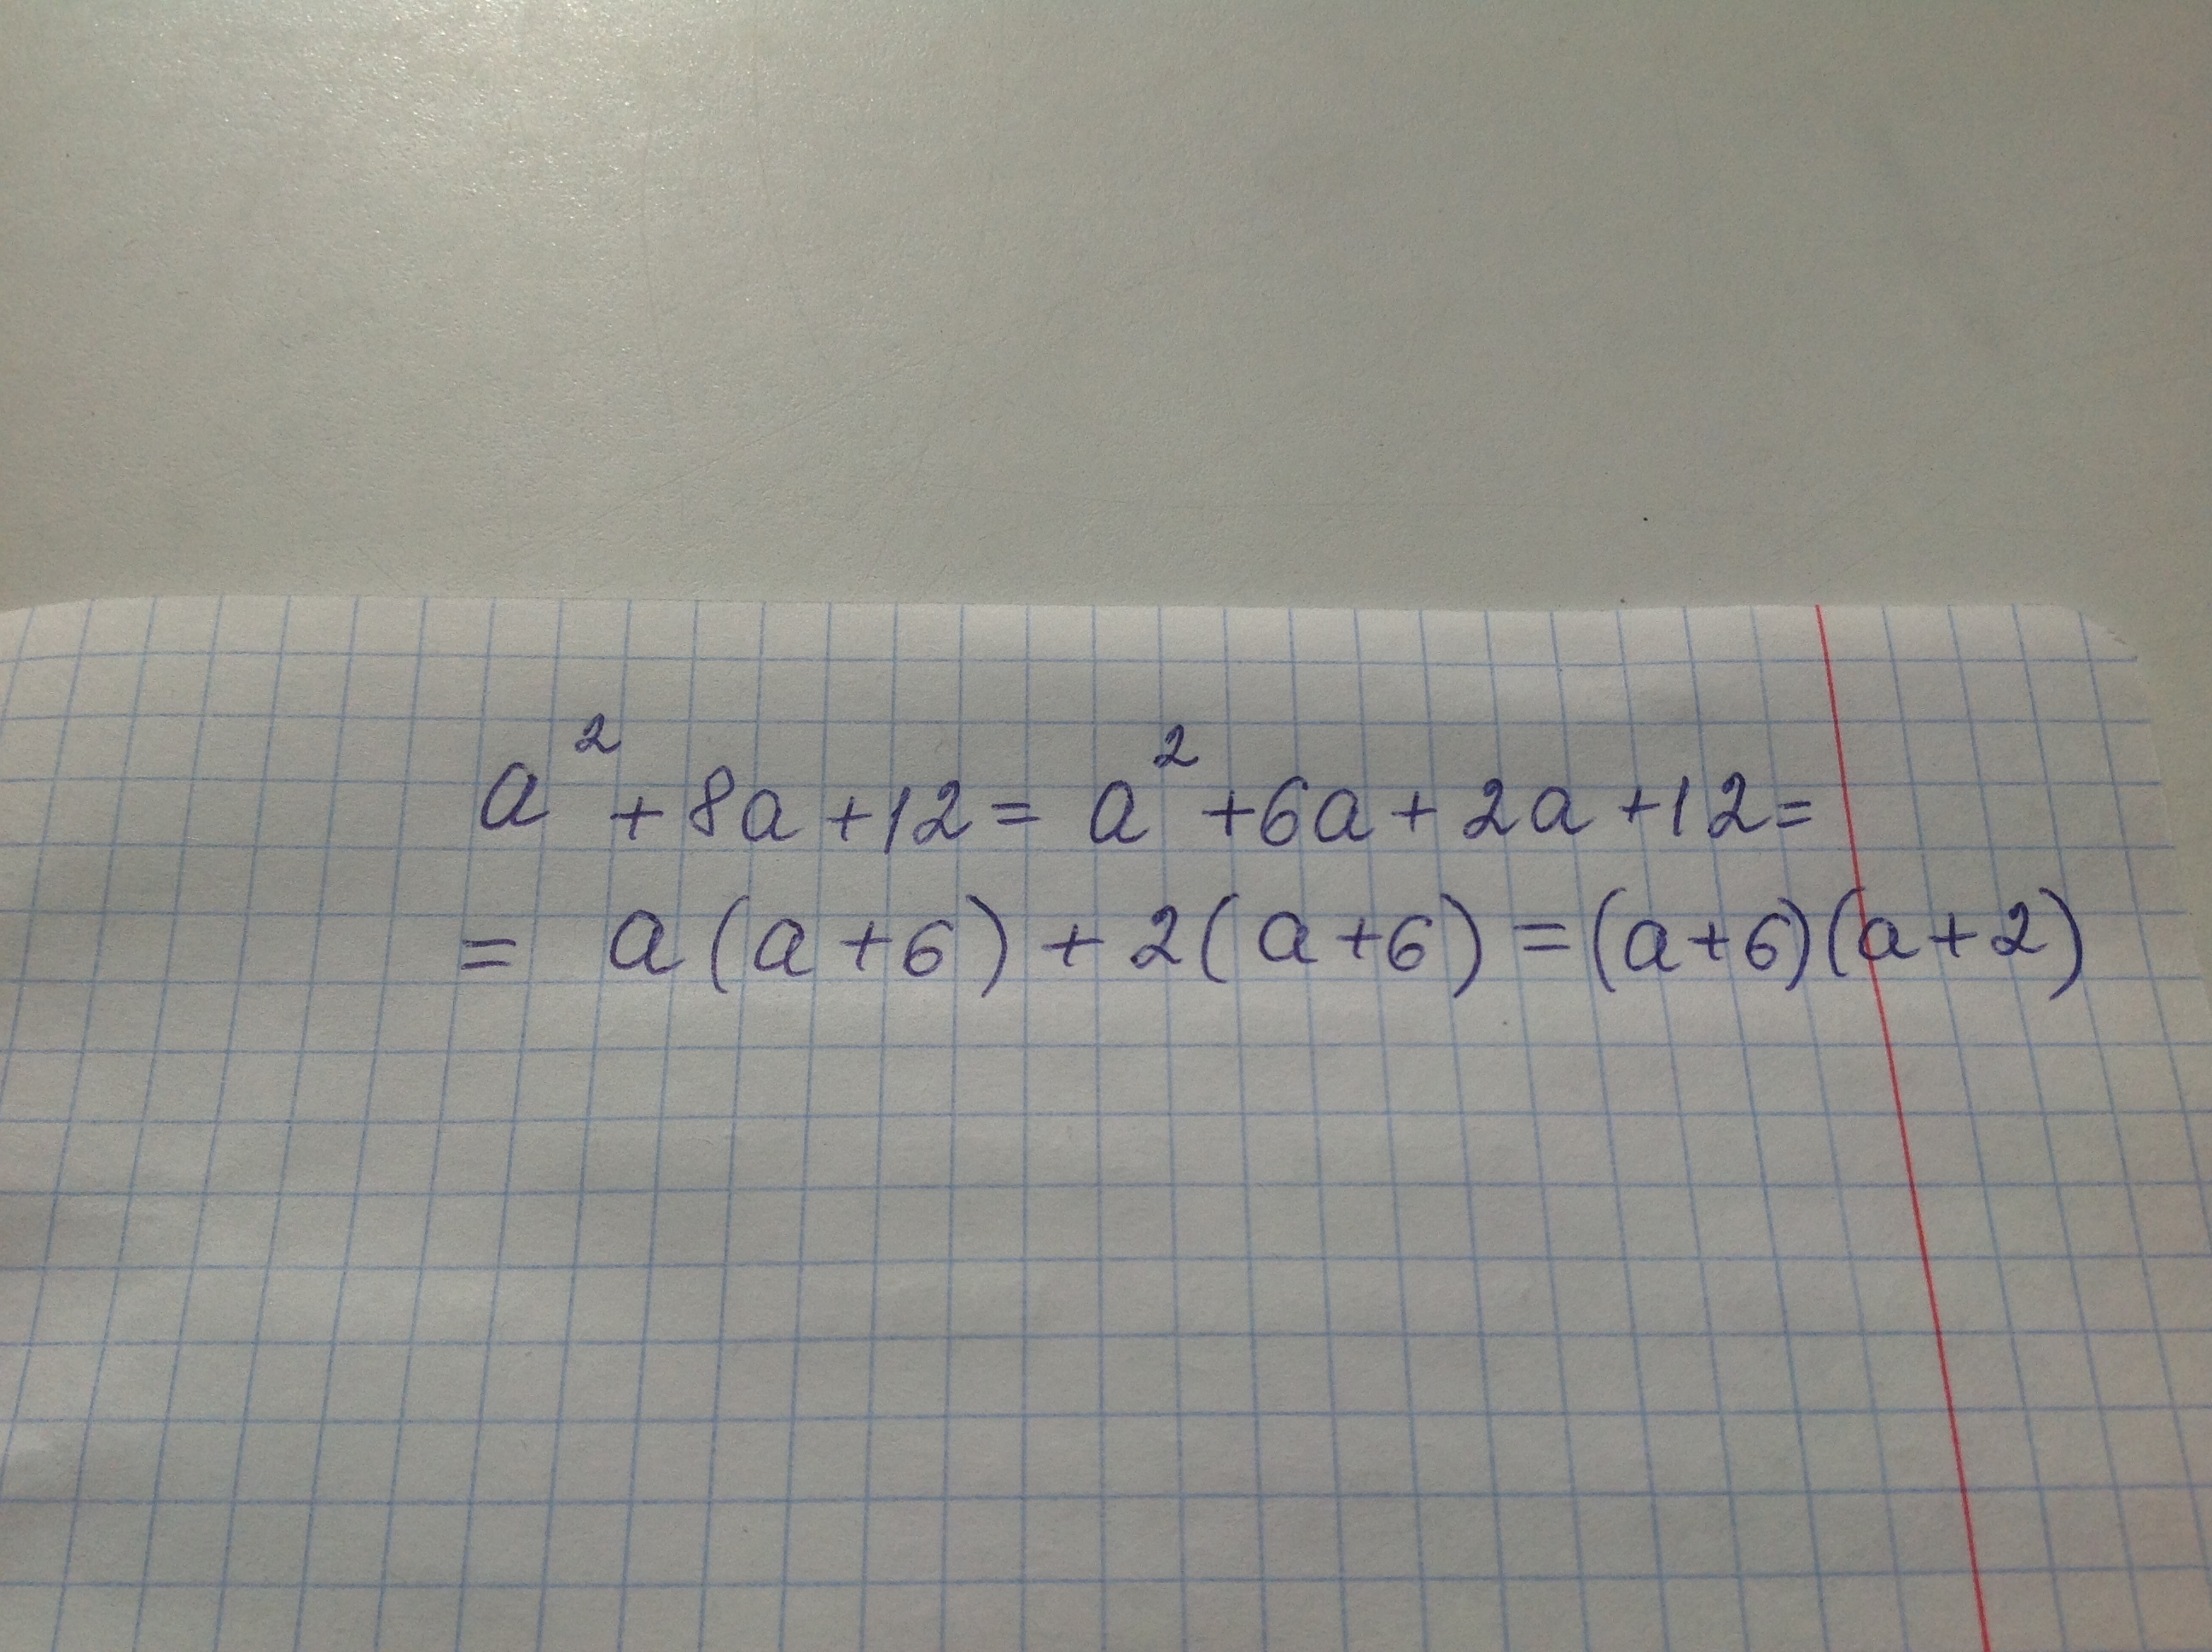 a² + 8a + 12 = a² + 6a + 2a + 12 =
= a (a + 6) + 2 (a + 6) = (a + 6)(a + 2)